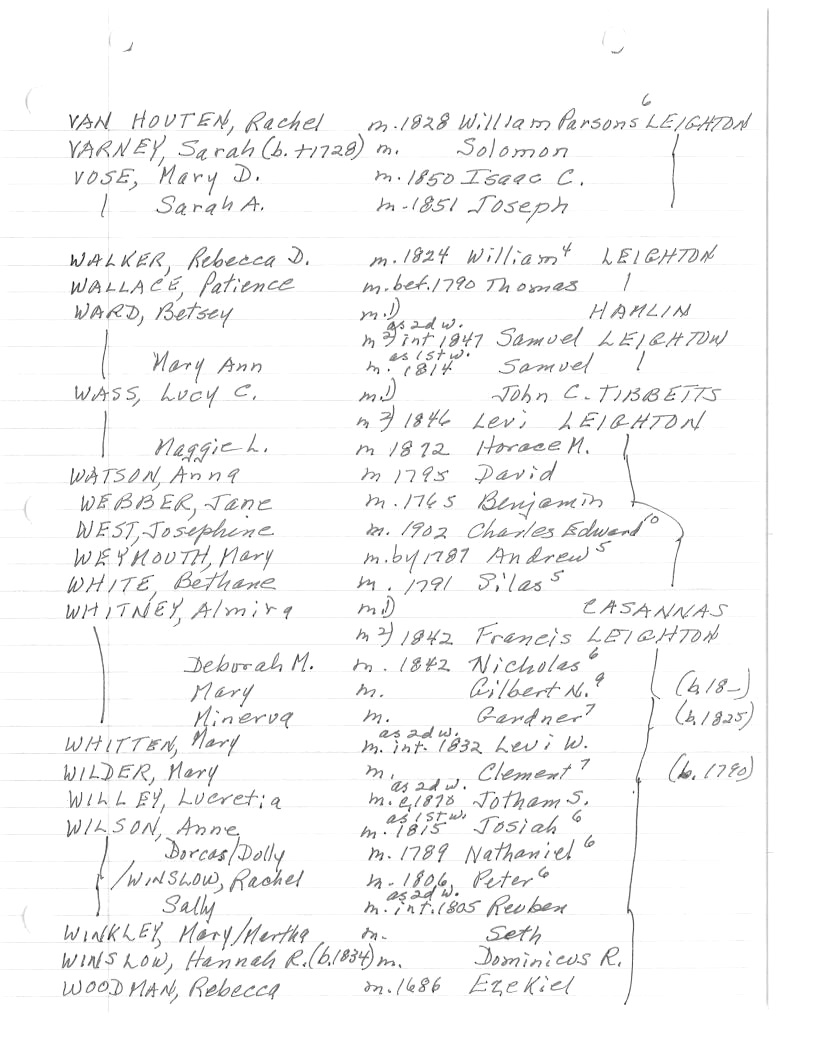 VAN HOUTEN, Rachel m. 1828 William Parsons⁶ LEIGHTON
VARNEY, Sarah (b. +1728) m. Solomon
VOSE, Mary D. m. 1850 Isaac C.
Sarah A. m. 1851 Joseph
WALKER, Rebecca D. m. 1824 William⁴ LEIGHTON
WALLACE, Patience m. bet. 1790 Thomas
WARD, Betsey m. 1) HAMLIN
as 2d w.
m 2) int 1847 Samuel LEIGHTON
as 1st w.
Mary Ann m. 1814 Samuel
WASS, Lucy C. m 1) John C. TIBBETTS
m 2) 1846 Levi LEIGHTON
Maggie L. m 1872 Horace M.
WATSON, Anna m 1795 David
WEBBER, Jane m. 1765 Benjamin
WEST, Josephine m. 1902 Charles Edward¹⁰
WEYMOUTH, Mary m. by 1787 Andrew⁵
WHITE, Bethane m. 1791 Silas⁵
WHITNEY, Almira m 1) CASANNAS
m 2) 1842 Francis LEIGHTON
Deborah M. m. 1842 Nicholas⁶
Mary m. Gilbert N.⁹ (b. 18-)
Minerva m. Gardner⁷ (b. 1825)
as 2d w.
WHITTEN, Mary m. int. 1832 Levi W.
WILDER, Mary m. Clement⁷ (b. 1790)
as 2d w.
WILLEY, Lucretia m. c. 1878 Jotham S.
as 1st w.
WILSON, Anne m. 1815 Josiah⁶
Dorcas/Dolly m. 1789 Nathaniel⁶
/WINSLOW, Rachel m. 1806 Peter⁶
as 2d w.
Sally m. int. 1805 Reuben
WINKLEY, Mary/Martha m. Seth
WINSLOW, Hannah R. (b. 1834) m. Dominicus R.
WOODMAN, Rebecca m. 1686 Ezekiel